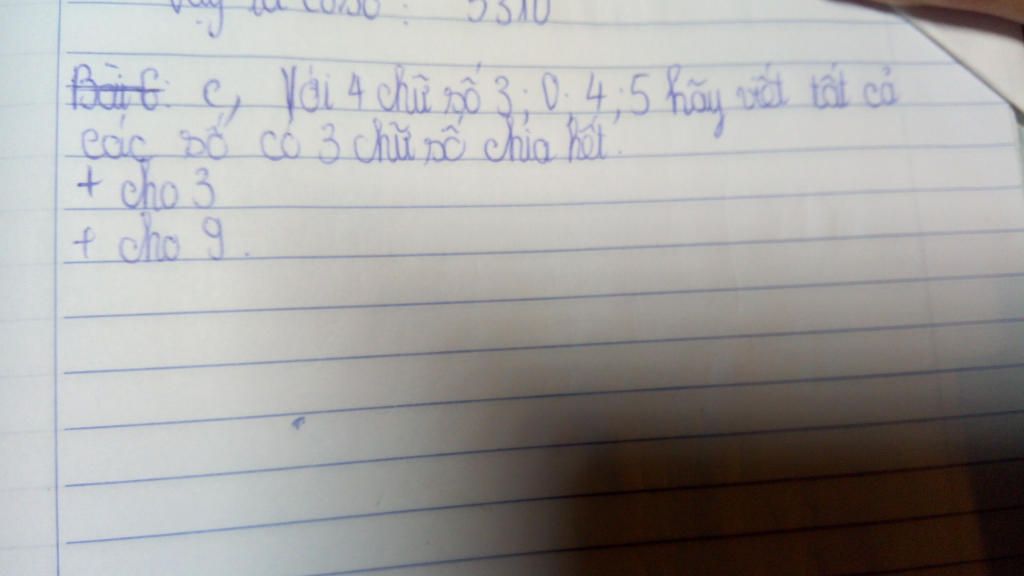 5310
Bài 6: c, Với 4 chữ số 3; 0; 4; 5 hãy viết tất cả
các số có 3 chữ số chia hết.
+ cho 3
+ cho 9.